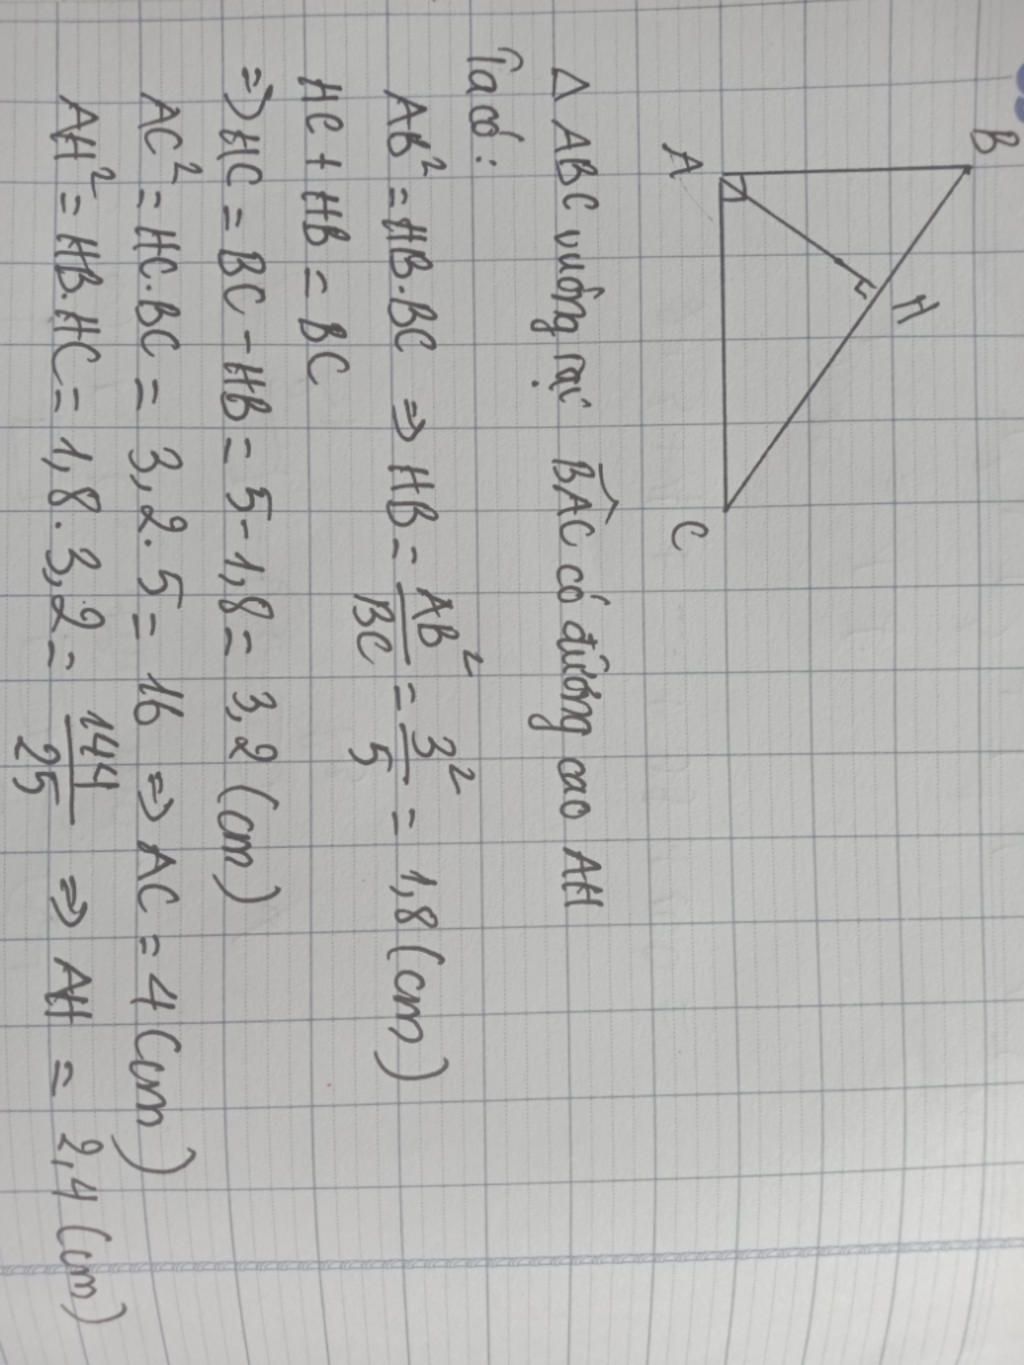 B
A
H
C
Δ ABC vuông tại \widehat{BAC} có đường cao AH
Ta có:
AB² = HB.BC ⇒ HB = AB²/BC = 3²/5 = 1,8 (cm)
HC + HB = BC
⇒ HC = BC - HB = 5 - 1,8 = 3,2 (cm)
AC² = HC.BC = 3,2.5 = 16 ⇒ AC = 4 (cm)
AH² = HB.HC = 1,8.3,2 = 144/25 ⇒ AH = 2,4 (cm)